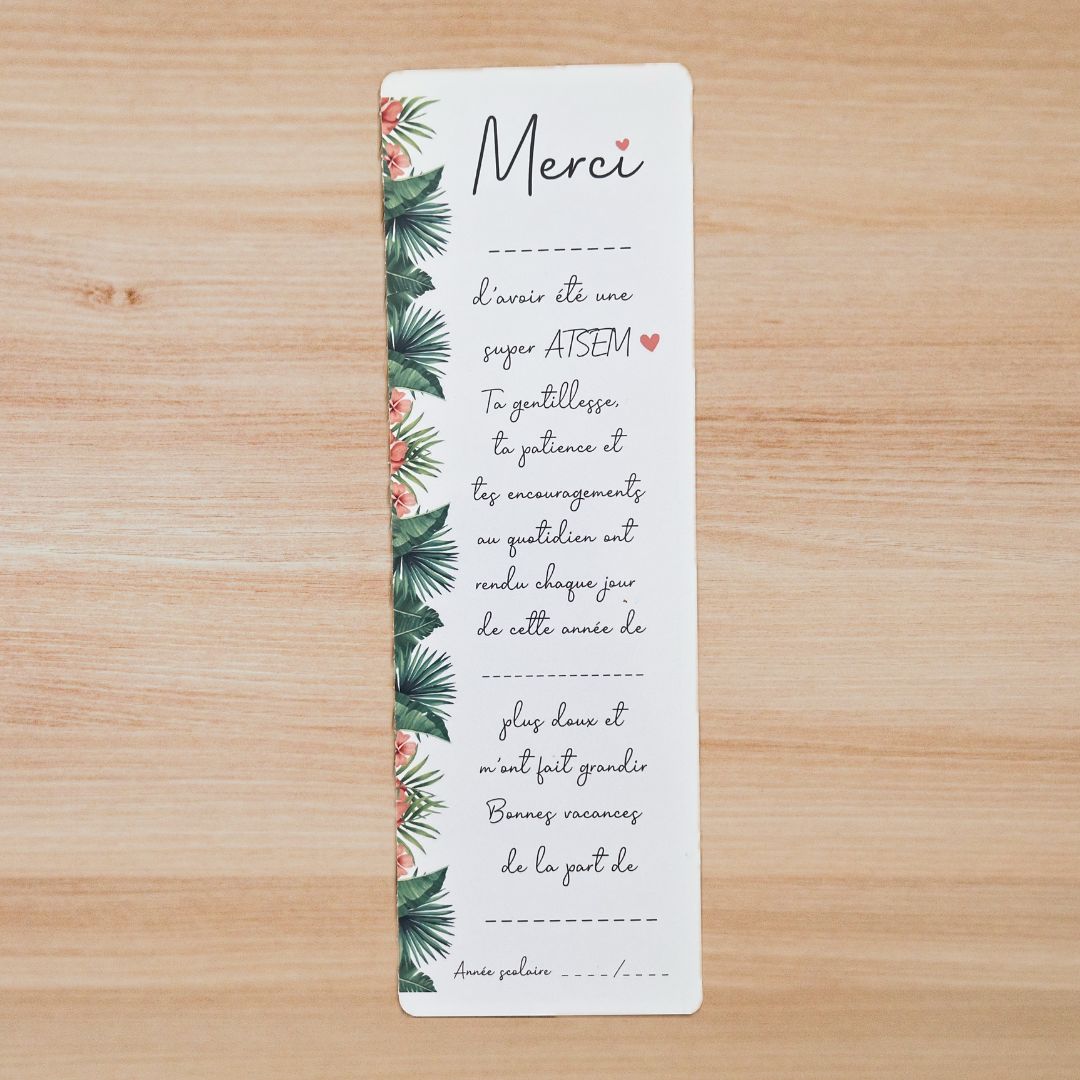 Merci
_________
d'avoir été une
super ATSEM
Ta gentillesse,
ta patience et
tes encouragements
au quotidien ont
rendu chaque jour
de cette année de
______________
plus doux et
m'ont fait grandir
Bonnes vacances
de la part de
___________
Année scolaire _ _ _ _ /_ _ _ _